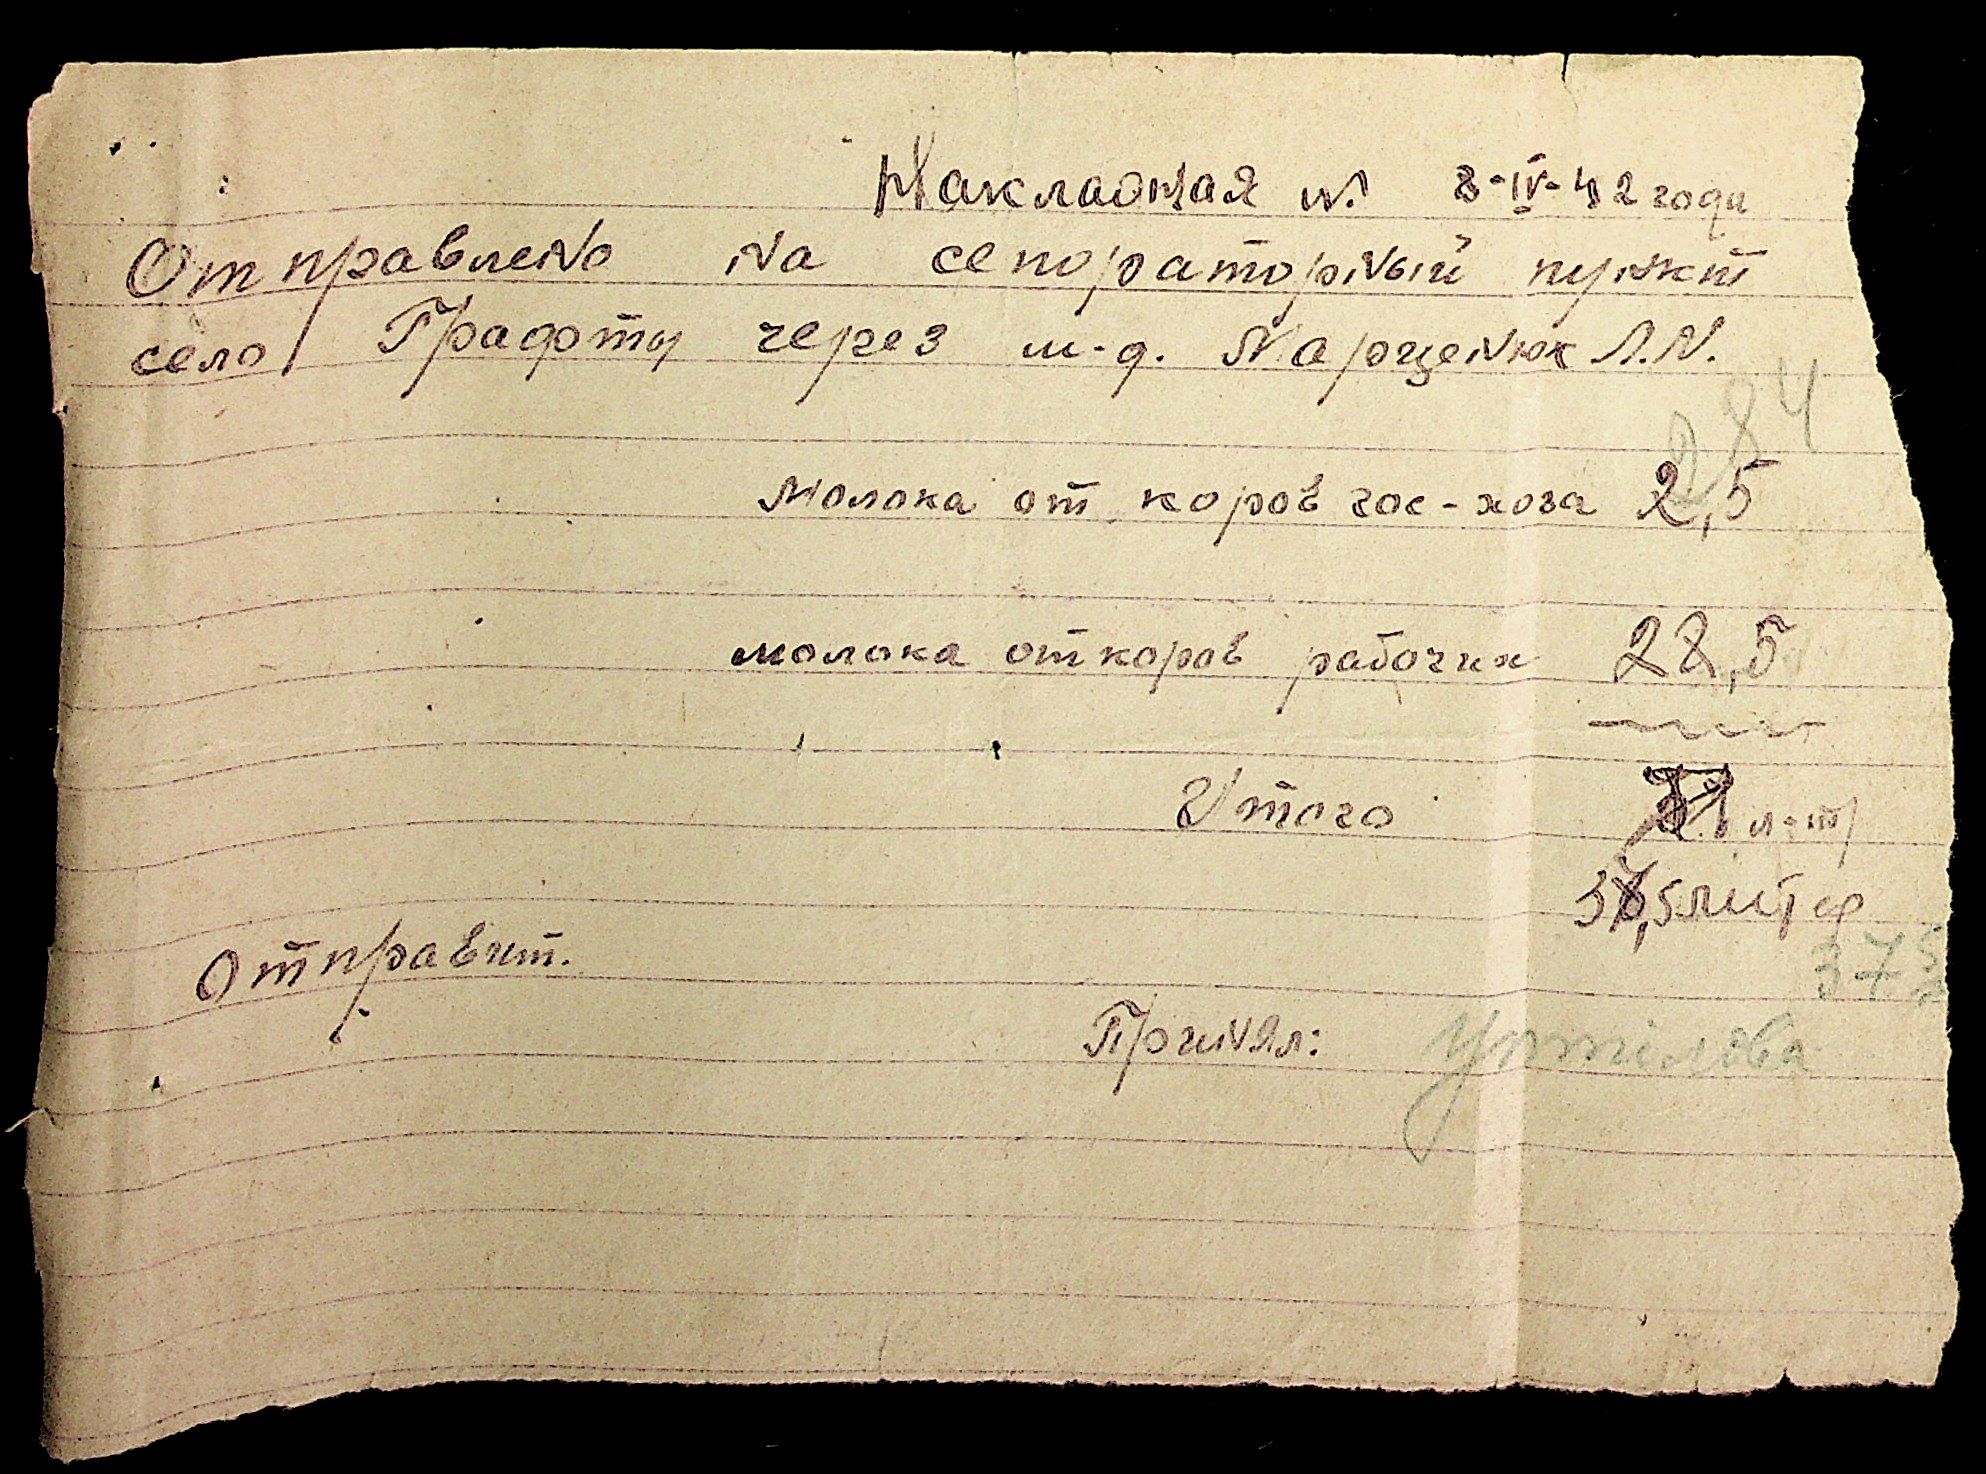 Накладная №. 8-IV-42 года
Отправлено на сепораторный пункт
село Традоты через ш-д. Марценюк Л.Н.
284
Молока от коров гос-хоза 2,5
молока от коров рабочих 28,5
Итого л-т
литер
Отправит.
375
Принял: